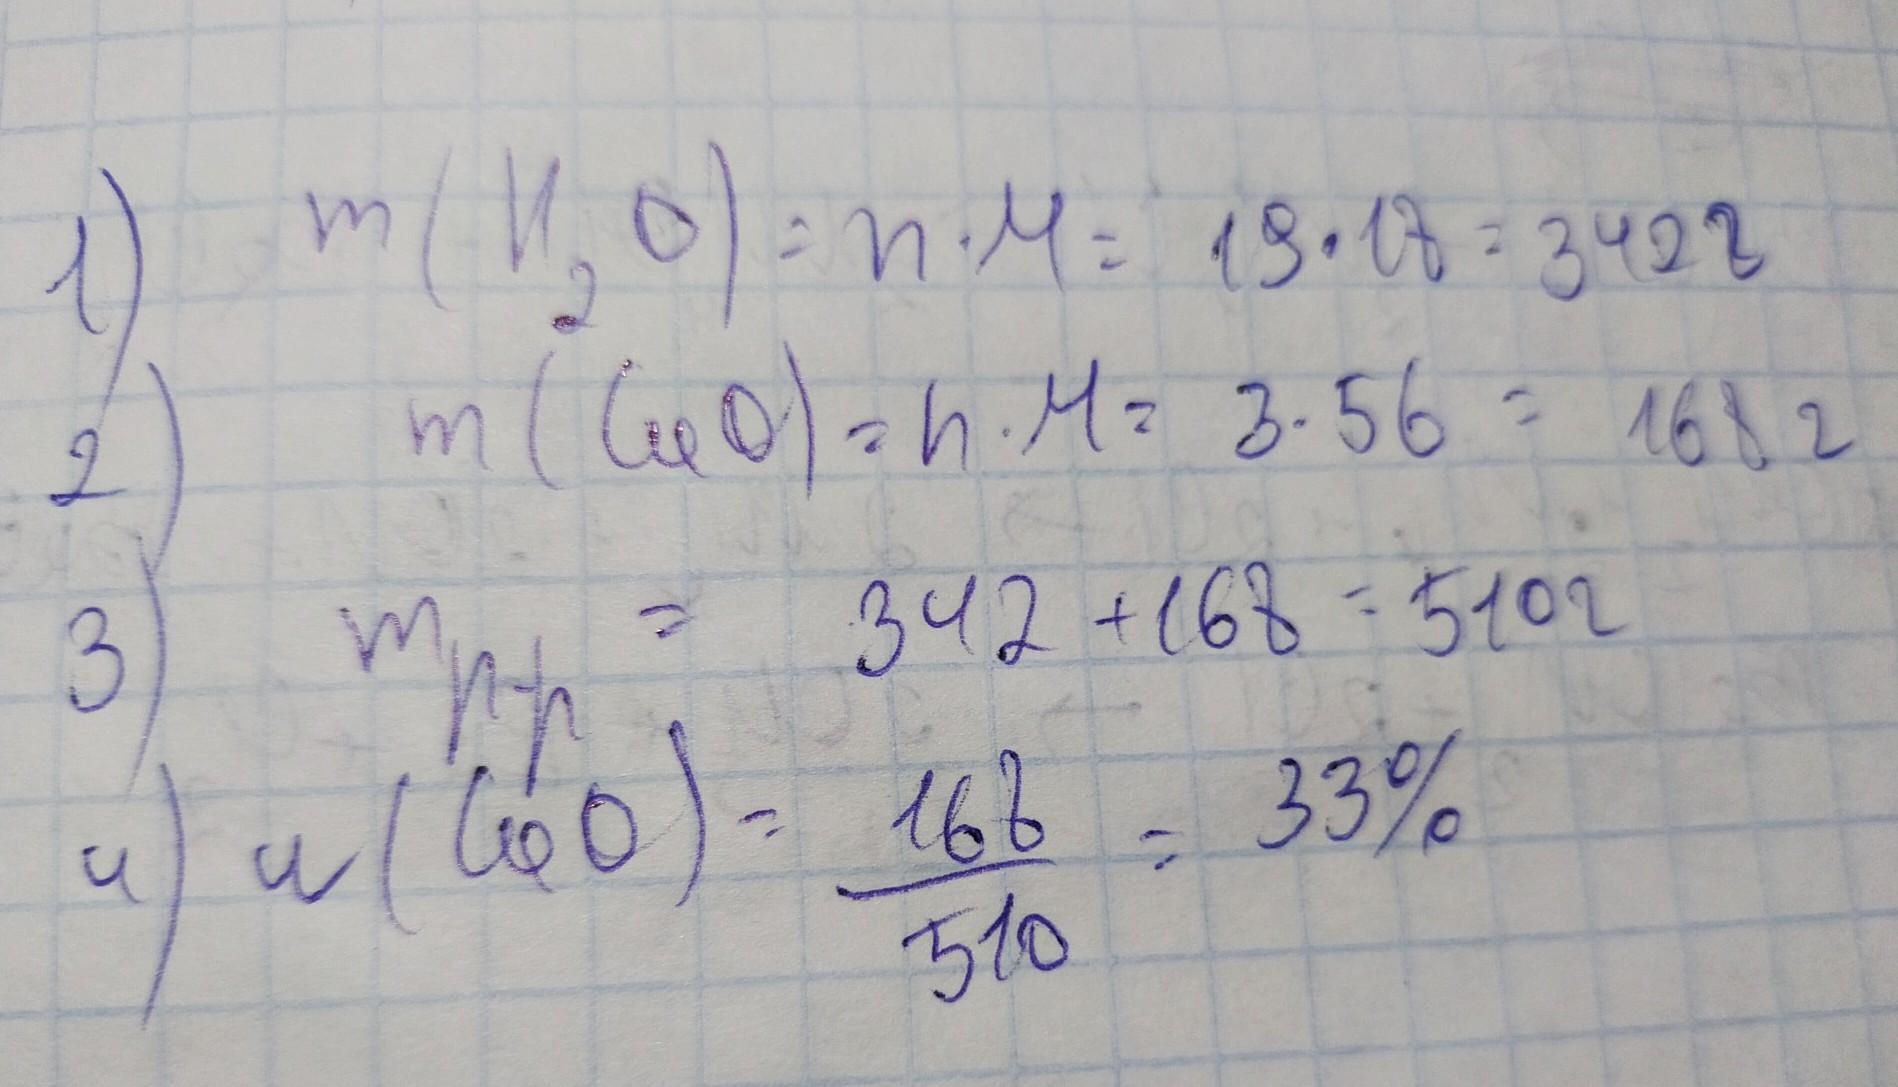 1) m(H₂O) = n · M = 19 · 18 = 342 г
2) m(CaO) = n · M = 3 · 56 = 168 г
3) m р-р = 342 + 168 = 510 г
4) w(CaO) = 168/510 = 33%